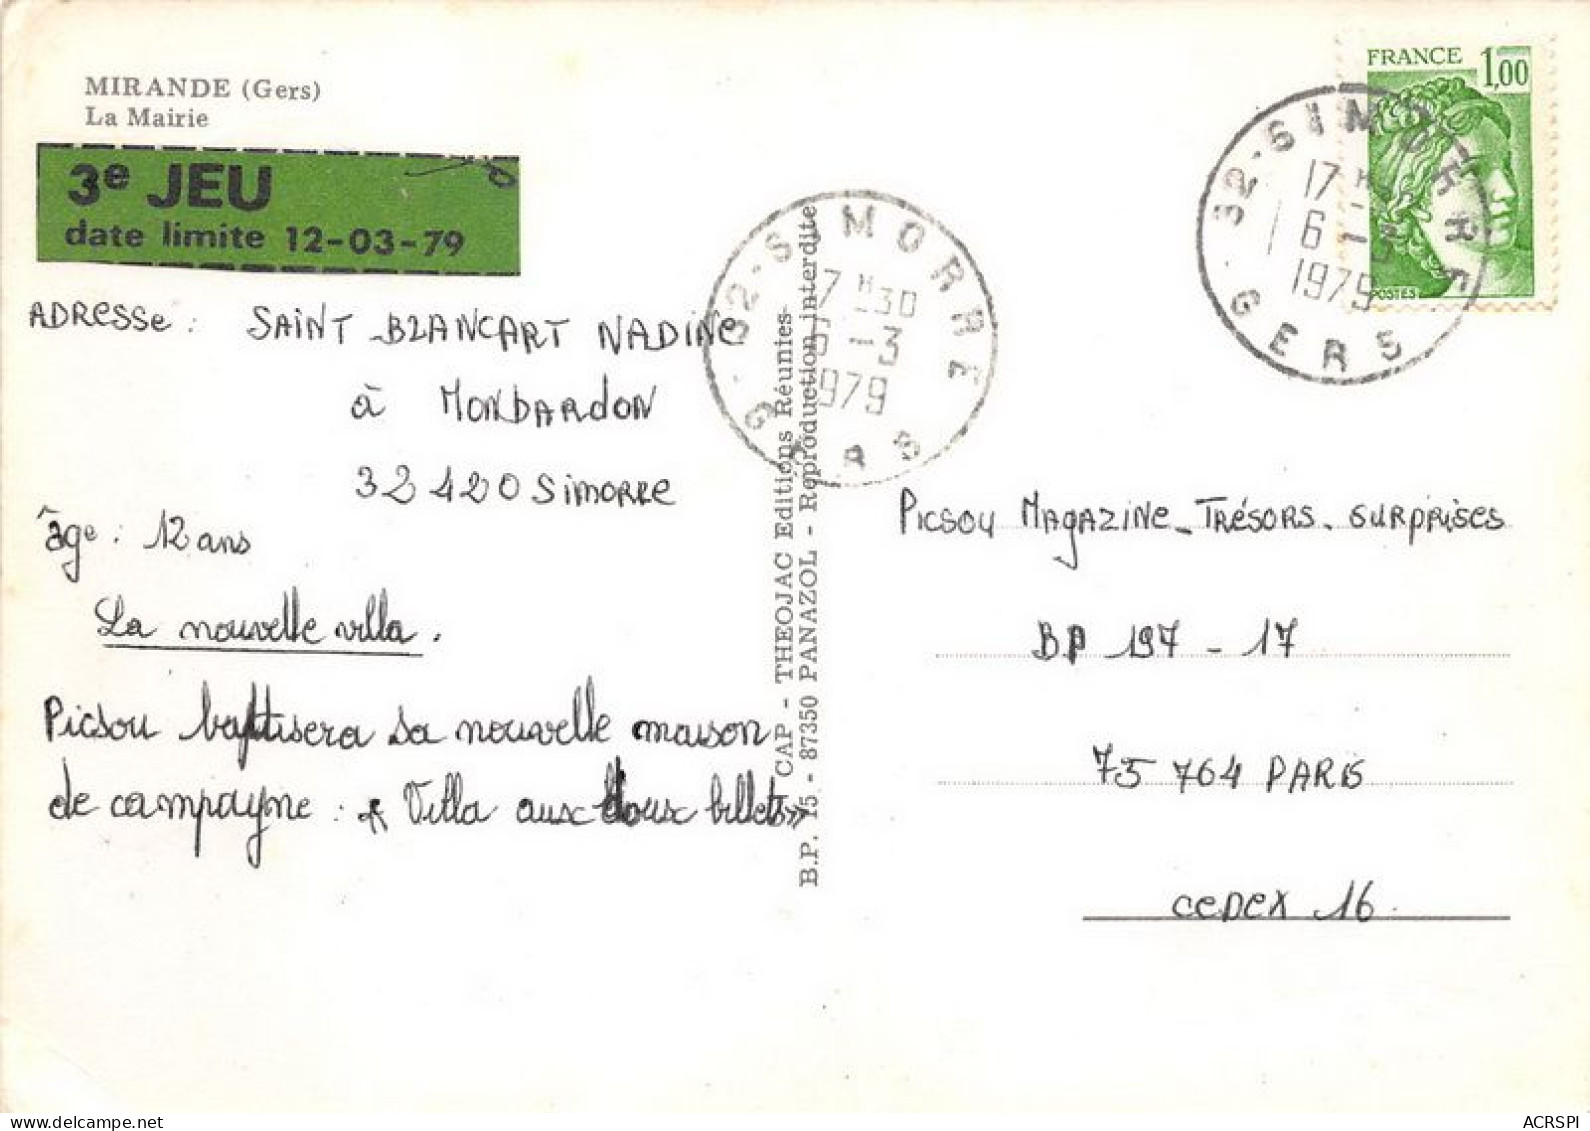 MIRANDE (Gers)
La Mairie
3e JEU
date limite 12-03-79
ADRESSE : SAINT-BLANCART NADINE
à MONBARDON
32420 SIMORRE
âge : 12 ans
La nouvelle villa.
Picsou baptisera sa nouvelle maison
de campagne : « Villa aux doux billets »
CAP - THEOJAC Editions Réunies
B.P. 15 - 87350 PANAZOL - Reproduction interdite
32-SIMORRE
7H30
6-3
1979
GERS
FRANCE 1,00
POSTES
32-SIMORRE
17H
6-3
1979
GERS
Picsou MAGAZINE_TRÉSORS_SURPRISES
BP 197 - 17
75 764 PARIS
CEDEX 16
delcampe.net
ACRSPI